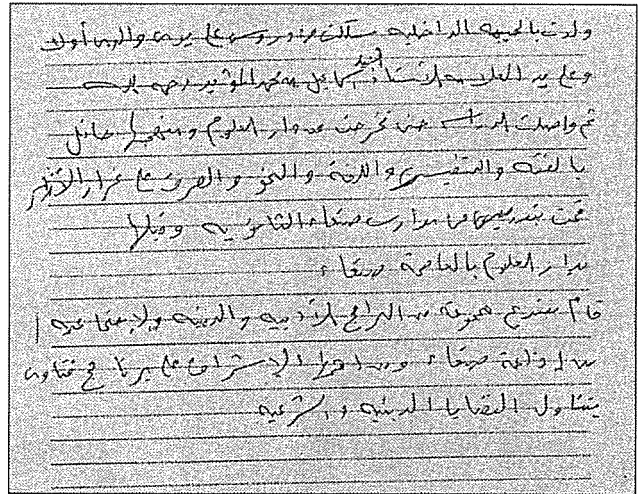 ولدت بالجبهه الداخليه سلكت دروسي على يدي والدي أولا
وعلى يد العلامه الأستاذ اسماعيل محمد المؤيد رحمه الله
ثم واصلت الدراسه حتى تخرجت من دار العلوم ومنهجها حافل
بالفقه والتفسير واللغة والنحو والصرف على غرار الأزهر
قمت بتدريسها في مدارس صنعاء الثانويه وقبلها
بدار العلوم بالعاصمة صنعاء
قام بتقديم مجموعة من البرامج الأدبيه والدينيه والاجتماعيه
من إذاعة صنعاء ومن أهمها الإشراف على برنامج فتاوى
يتناول القضايا الدينيه والشرعيه